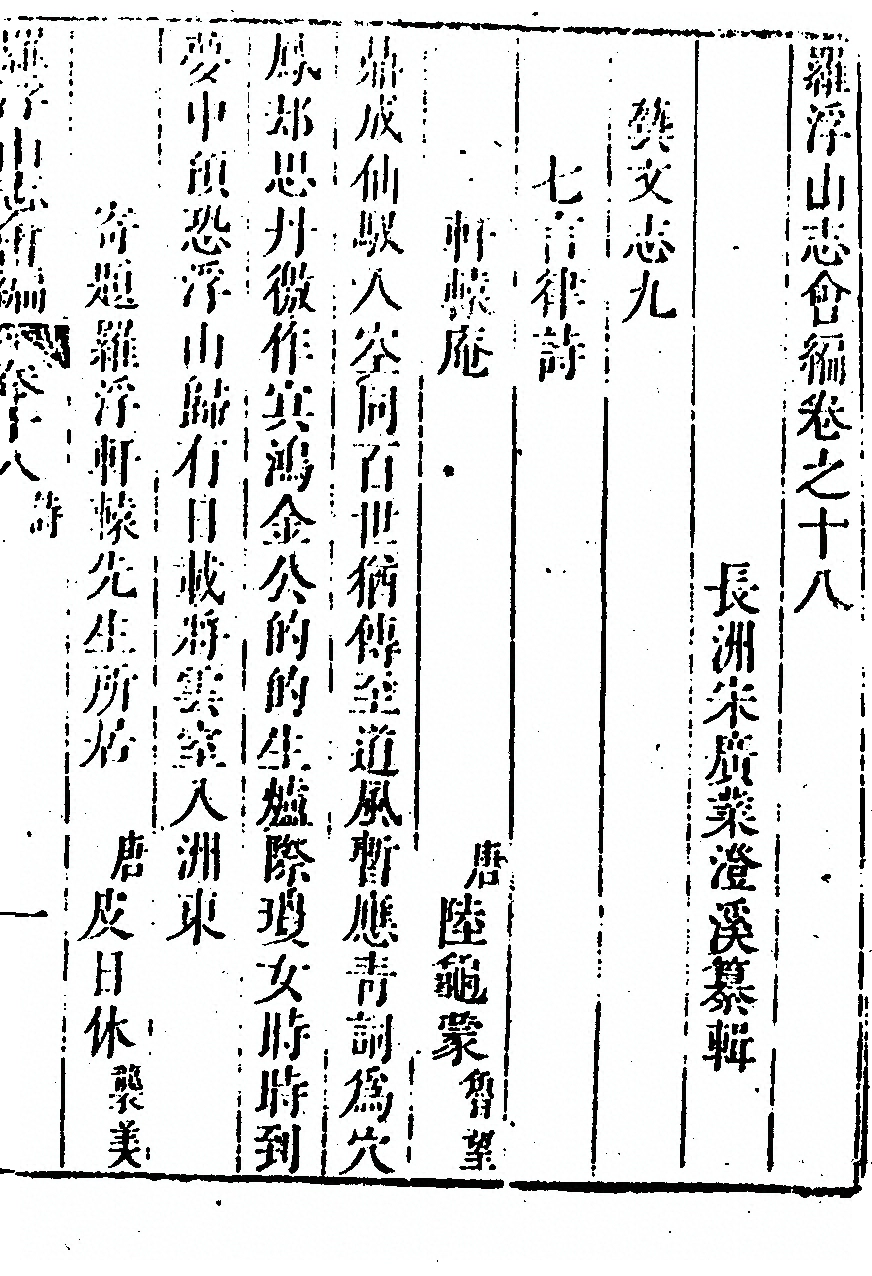 羅浮山志會編卷之十八
長洲宋廣業澄溪纂輯
藝文志九
七言律詩
軒轅庵 唐陸龜蒙魯望
鼎成仙馭入空同百世猶傳至道風暫應青詞爲穴
鳳却思丹徼作賓鴻金公的的生爐際瓊女時時到
夢中預恐浮山歸有日載將雲室入洲東
寄題羅浮軒轅先生所居 唐皮日休襲美
羅浮山志會編 卷十八 詩 一